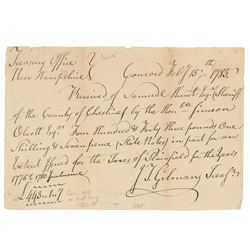 Treasury Office
New Hampshire
Concord July 15th 1783.
Received of Samuel Hunt Esqr. Sheriff
of the County of Cheshire by the Hon'ble Simeon
Olcott Esqr. Four Hundred & Forty three pounds One
Shilling & Seven pence (State Notes) in part for an
Extent Issued for the Taxes of Plainfield for the Years
1776 & inclusive
£443..1..7
J T Gilman Treasr.